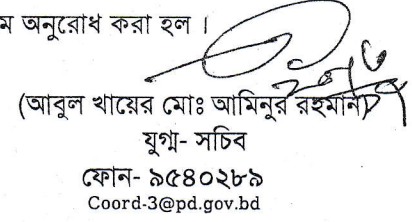 ম অনুরোধ করা হল ।
(আবুল খায়ের মোঃ আমিনুর রহমান)
যুগ্ম- সচিব
ফোন- ৯৫৪০২৮৯
Coord-3@pd.gov.bd